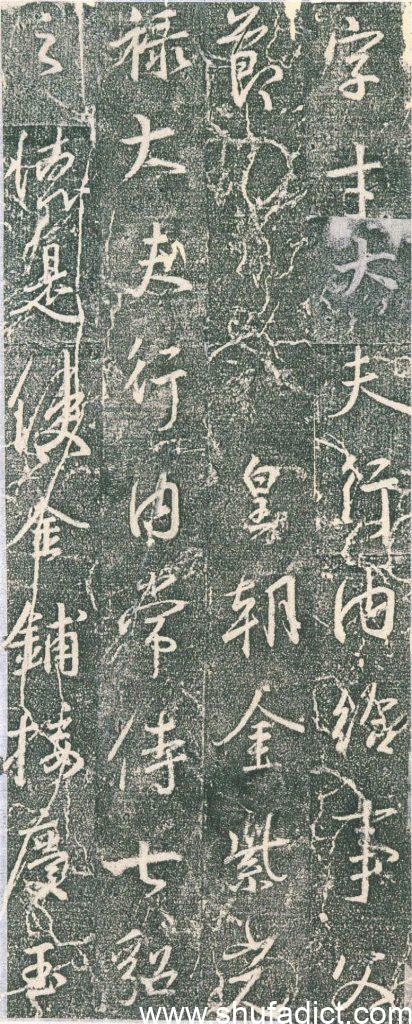 字才大夫行內給事父
節皇朝金紫光
祿大夫行內常侍七貂
之是使金鋪接慶玉
www.shufadict.com